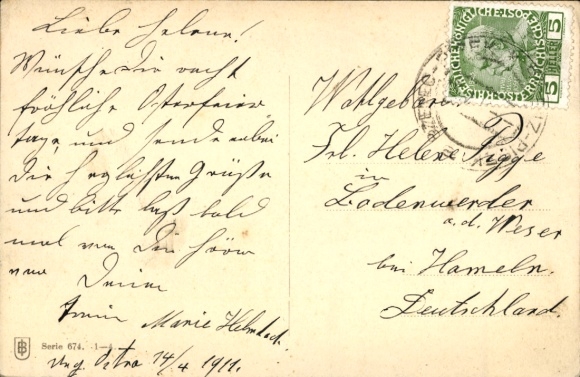 Liebe Helene!
Wünsche Dir recht
fröhliche Osterfeier
tage und sende anbei
die herzlichsten Grüße
und bitte laß bald
mal von Dir hören
Deine
Marie
Serie 674. 1—4
Ung. Ostra 14/4 1911.
5 HELLER 5
KAISERLICHE KÖNIGLICHE ÖSTERREICHISCHE POST
Wohlgeboren
Frl. Helene
in
Bodenwerder
a. d. Weser
bei Hameln.
Deutschland.